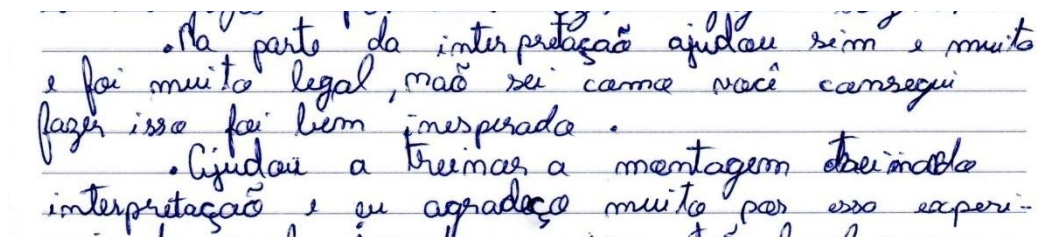 .Na parte da interpretação ajudou sim e muito
e foi muito legal, não sei como você consegui
fazer isso foi bem inesperado.
.Ajudou a treinar a montagem
interpretação e eu agradeço muito por esso experi-